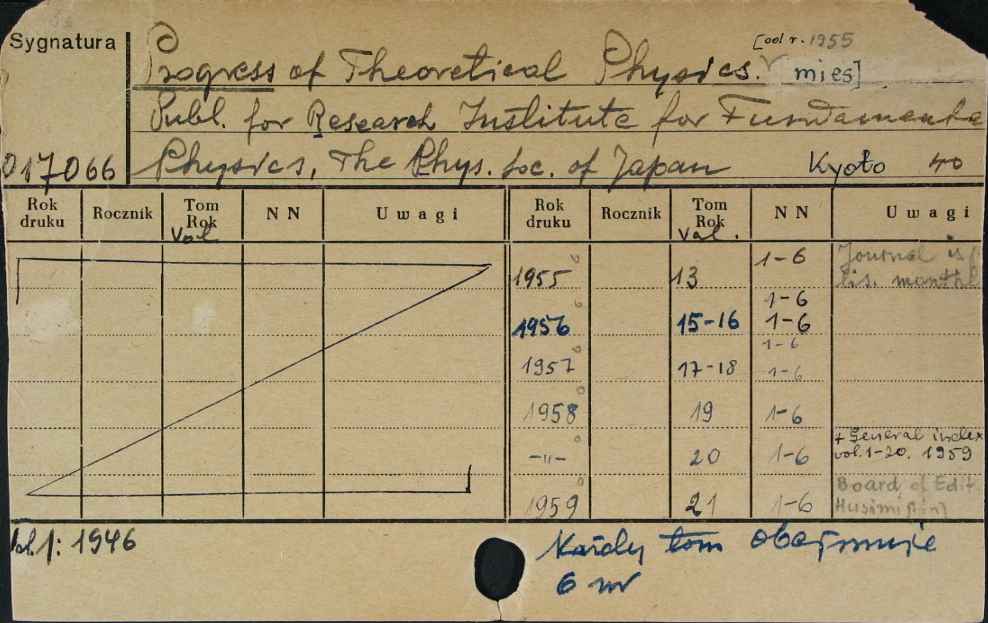 Sygnatura
[od r. 1955
Progress of Theoretical Physics. [mies]
Publ. for Research Institute for Fundamenta
017066 Physics, The Phys. Soc. of Japan Kyoto 40
Rok druku Rocznik Tom Rok Vol N N Uwagi Rok druku Rocznik Tom Rok Vol. N N Uwagi
1955 13 1-6 Journal is
bis. monthl
1-6
1956 15-16 1-6
1-6
1957 17-18 1-6
1958 19 1-6
-"- 20 1-6 + General index
vol. 1-20. 1959
1959 21 1-6 Board of Edit.
Husimi
: 1946
Każdy tom obejmuje
6 nr